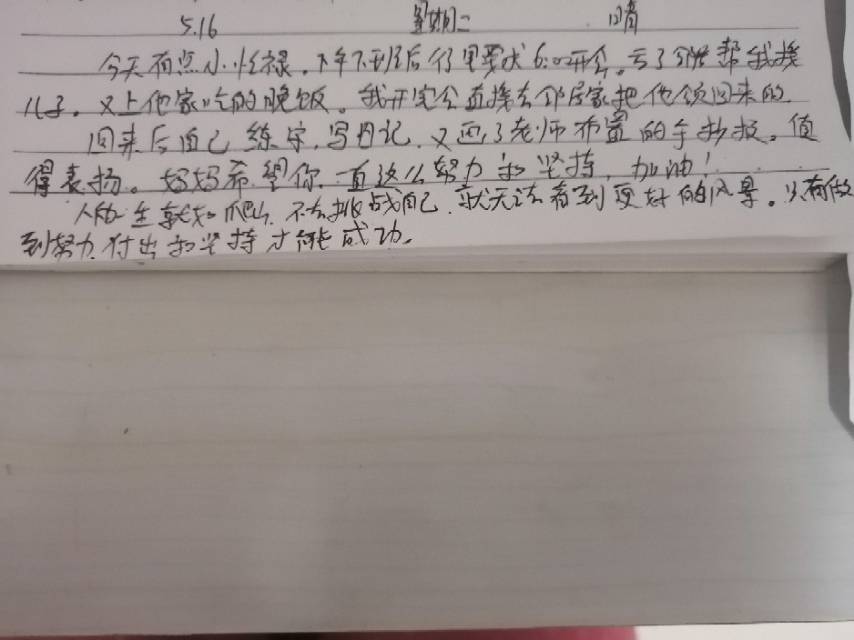 5.16 星期二 晴
今天有点小忙碌。下午下班后行里要求6:00开会。亏了邻居帮我接
儿子。又上他家吃的晚饭。我开完会直接去邻居家把他领回来的
回来后自己练字,写日记,又画了老师布置的手抄报。值
得表扬。妈妈希望你一直这么努力和坚持,加油!
人生就如爬山,不去挑战自己,就无法看到更好的风景。只有做
到努力付出和坚持才能成功。